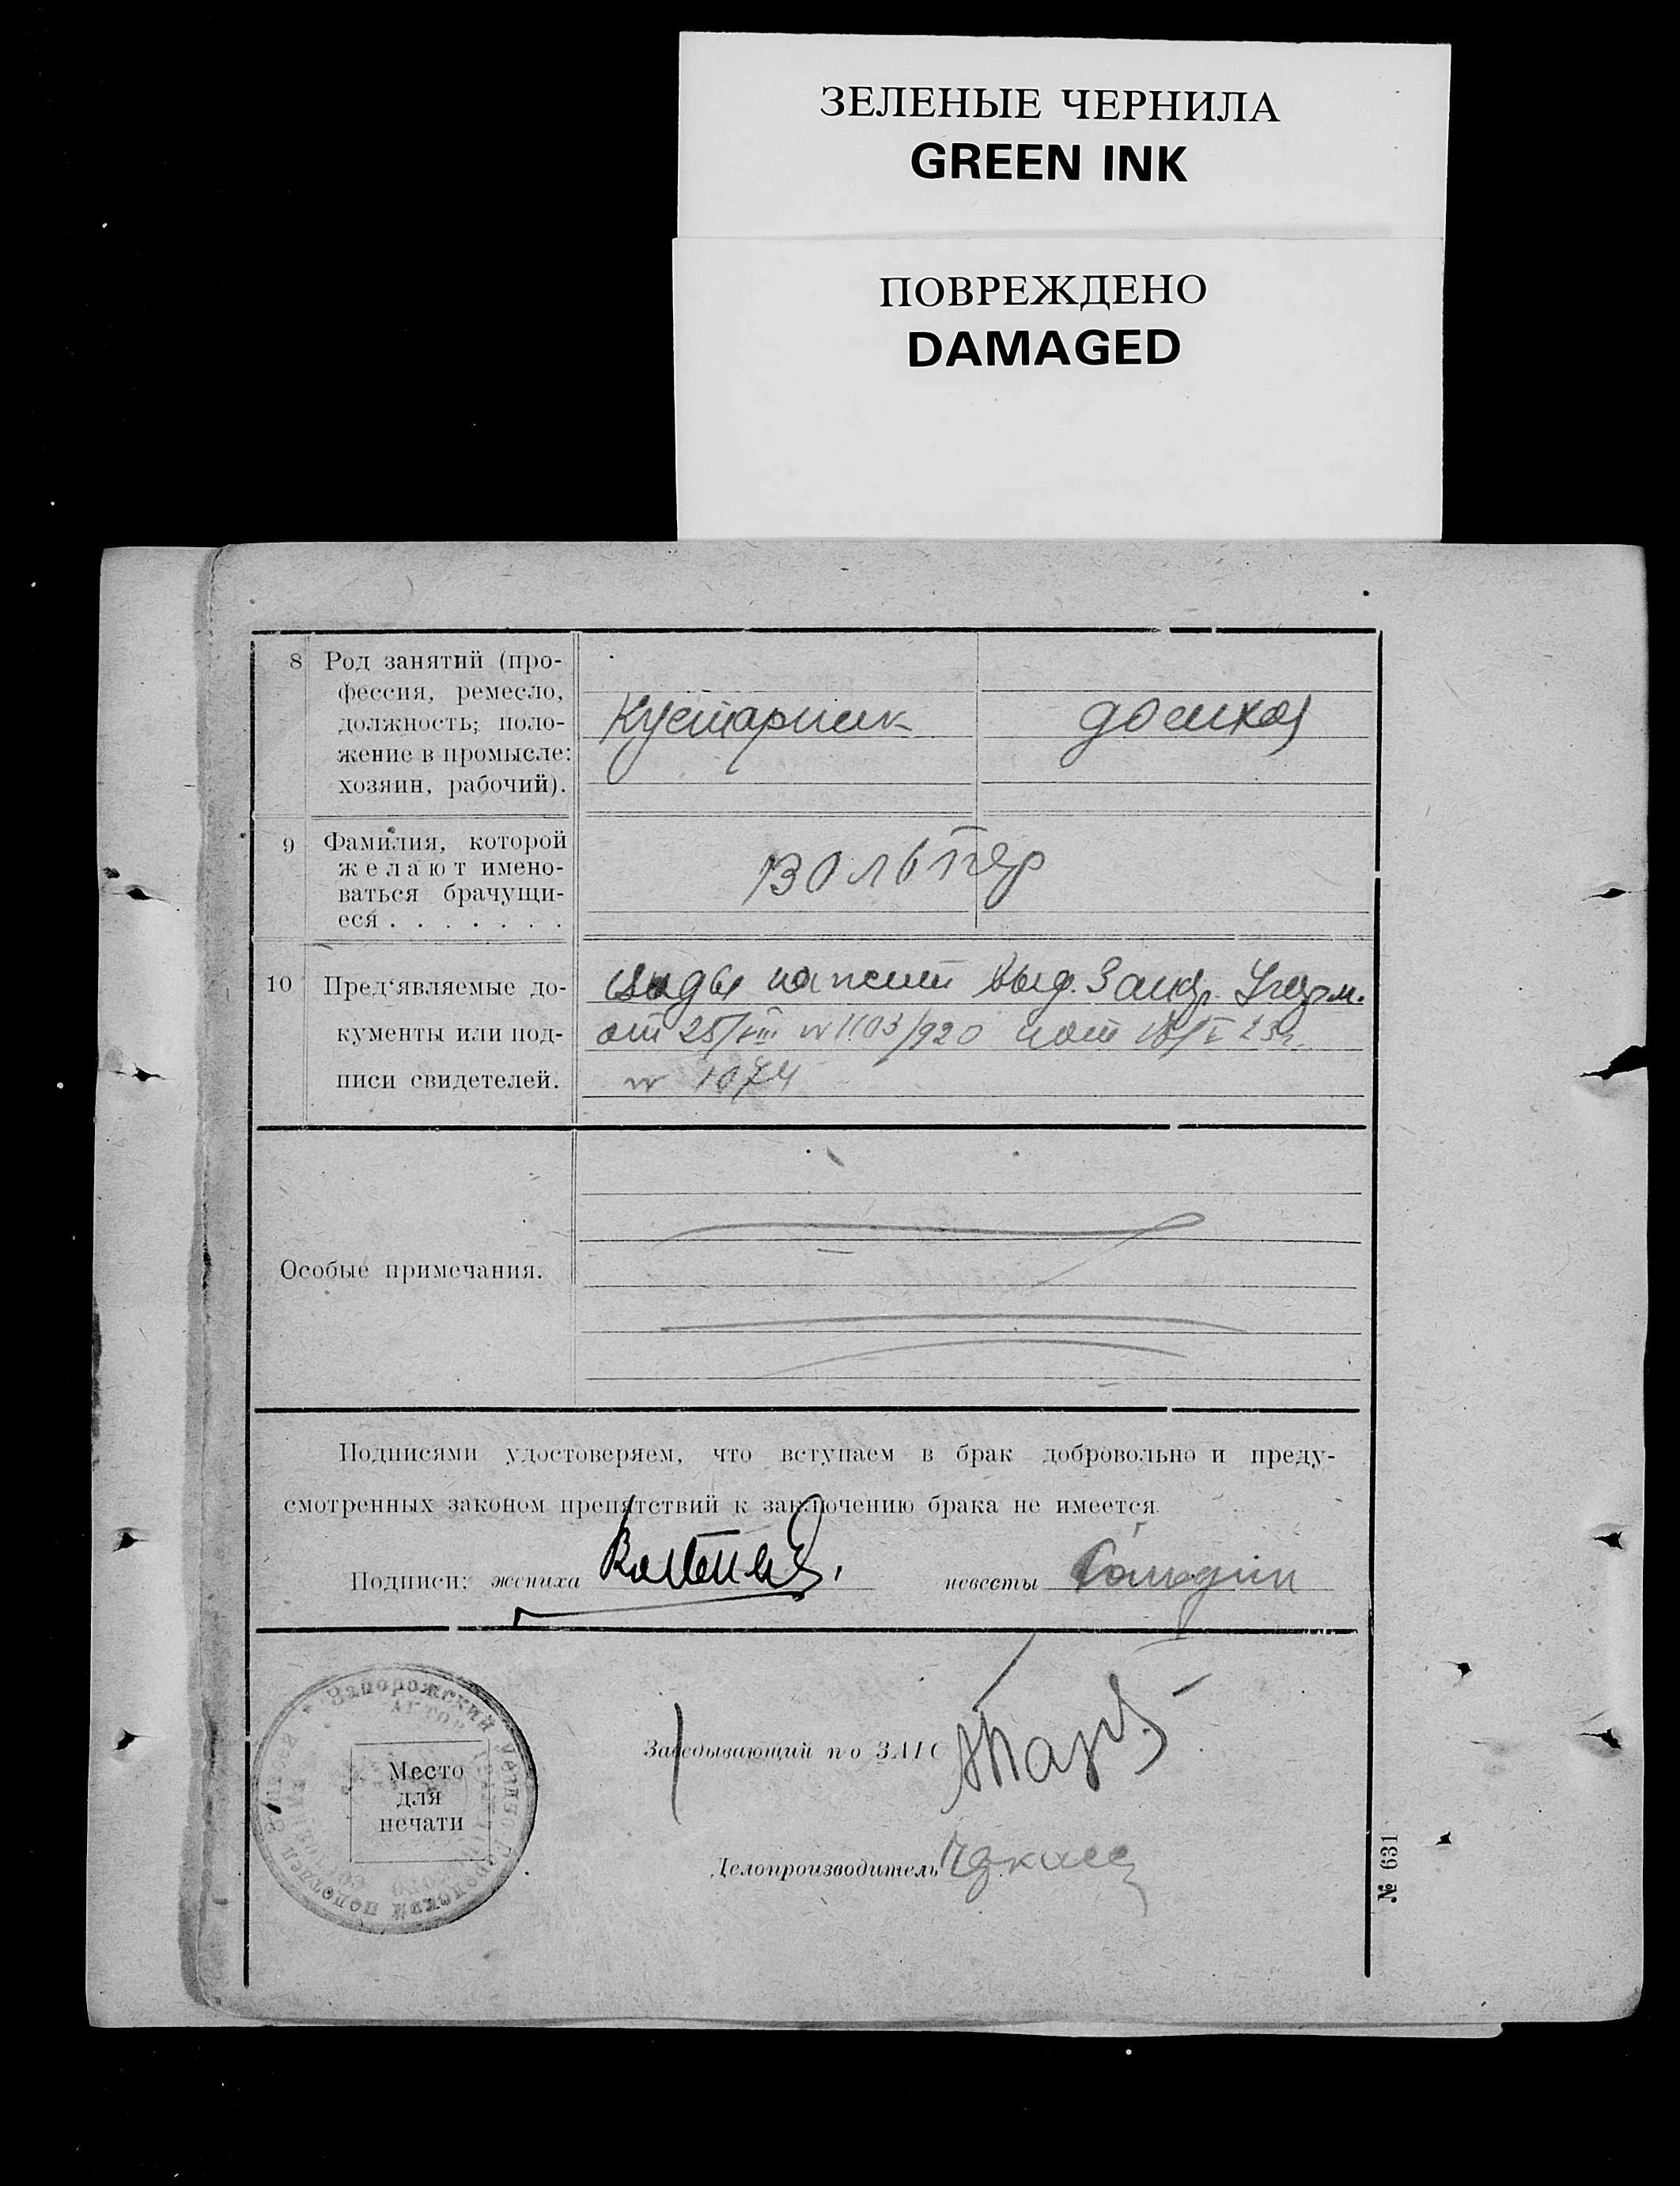 ЗЕЛЕНЫЕ ЧЕРНИЛА
GREEN INK
ПОВРЕЖДЕНО
DAMAGED
8 Род занятий (про-
фессия, ремесло,
должность; поло-
жение в промысле:
хозяин, рабочий).
Кустарник
9 Фамилия, которой
желают имено-
ваться брачущи-
еся . . . . . . .
Вольпер
10 Пред‘являемые до-
кументы или под-
писи свидетелей.
выд.
от 25/VIII № 1103/920
№ 1074
Особые примечания.
Подписями удостоверяем, что вступаем в брак добровольно и преду-
смотренных законом препятствий к заключению брака не имеется.
Подписи: жениха невесты
Запорожский
подотдел
Место
для
печати
Заведывающий по ЗАГС
Делопроизводитель
№ 631